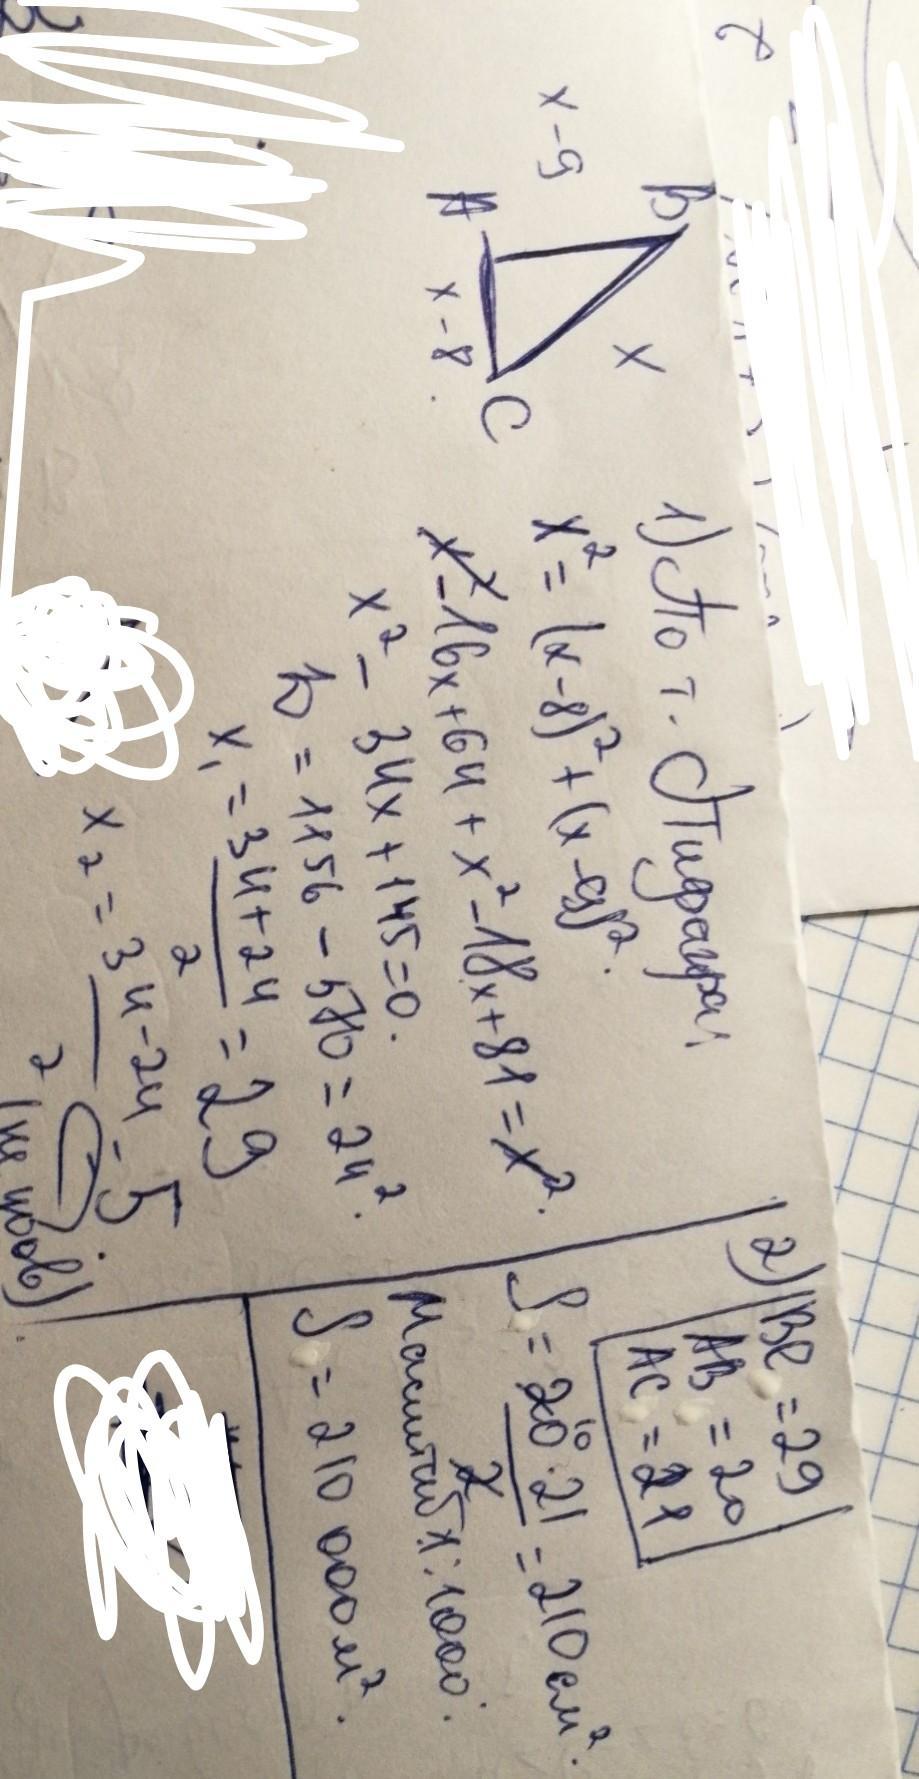 B
x-9
x
A
x-8.
C
1) По т. Пифагора
x² = (x-8)² + (x-9)².
x²-16x+64+x²-18x+81=x².
x² - 34x + 145 = 0.
D = 1156 - 580 = 24².
x₁ = 34+24/2 = 29
x₂ = 34-24/2 = 5.
2) BC = 29
AB = 20
AC = 21
S = 20·21/2 = 210 см².
10
Масштаб 1:1000.
S = 210 000 м².